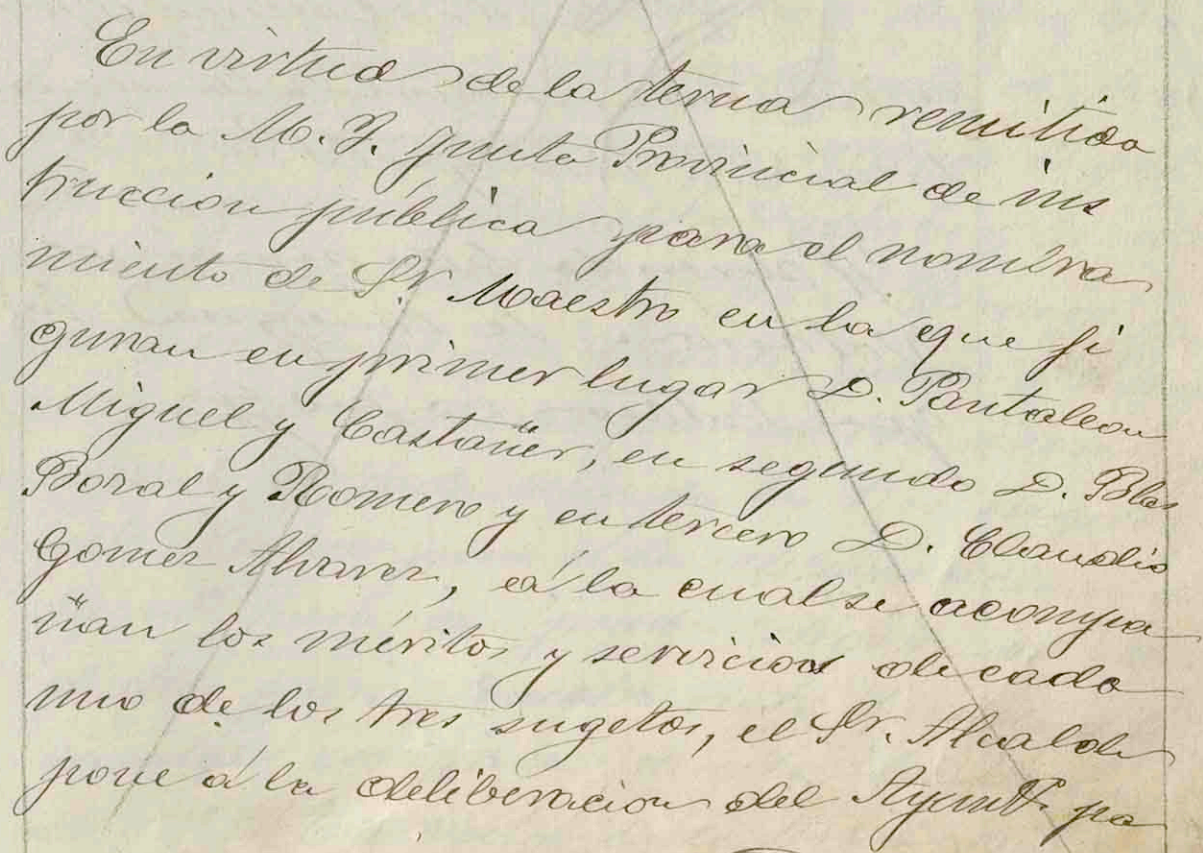 En virtud de la terna remitida
por la M. I. Junta Provincial de ins
truccion pública para el nombra
miento de Sr Maestro en la que fi
guran en primer lugar D. Pantaleon
Miguel y Castañer, en segundo D. Blas
Boral y Romero y en tercero D. Claudio
Gomez Alvarez, á la cual se acompa
ñan los méritos y servicios de cada
uno de los tres sugetos, el Sr. Alcalde
pone á la deliberacion del Ayunt.º pa